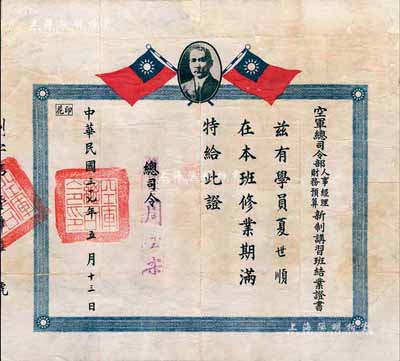 空軍總司令部人事經理財務預算新制講習班結業證書
茲有學員夏世順
在本班修業期滿
特給此證
總司令
中華民國 年五月十三日
印花
號